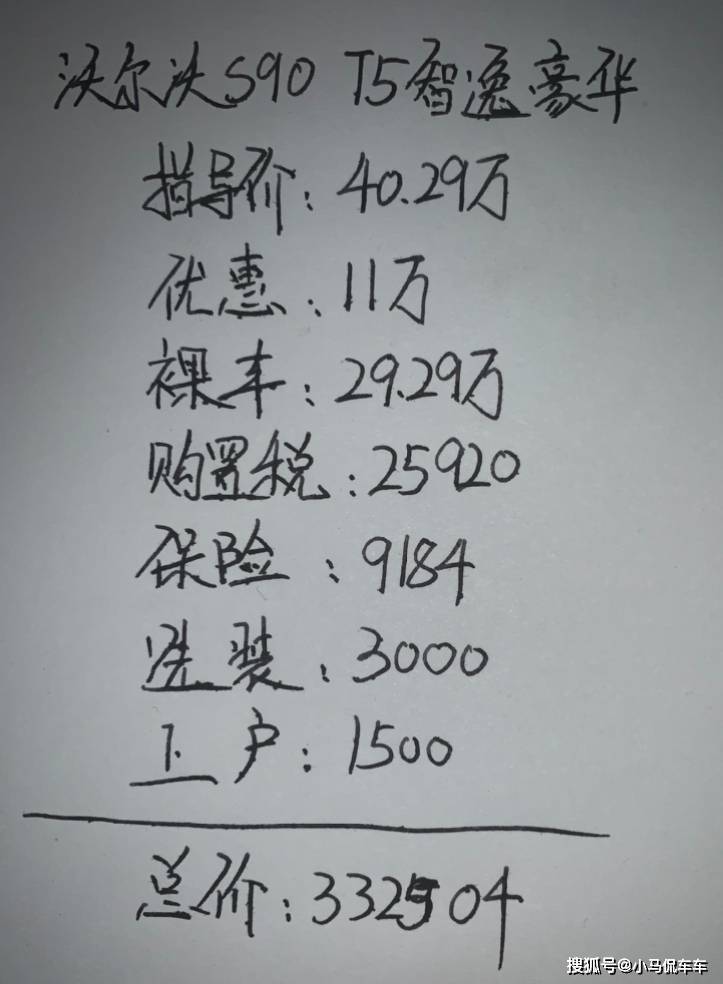 沃尔沃S90 T5智逸豪华
指导价：40.29万
优惠：11万
裸车：29.29万
购置税：25920
保险：9184
选装：3000
上户：1500
总价：332504
搜狐号@小马侃车车